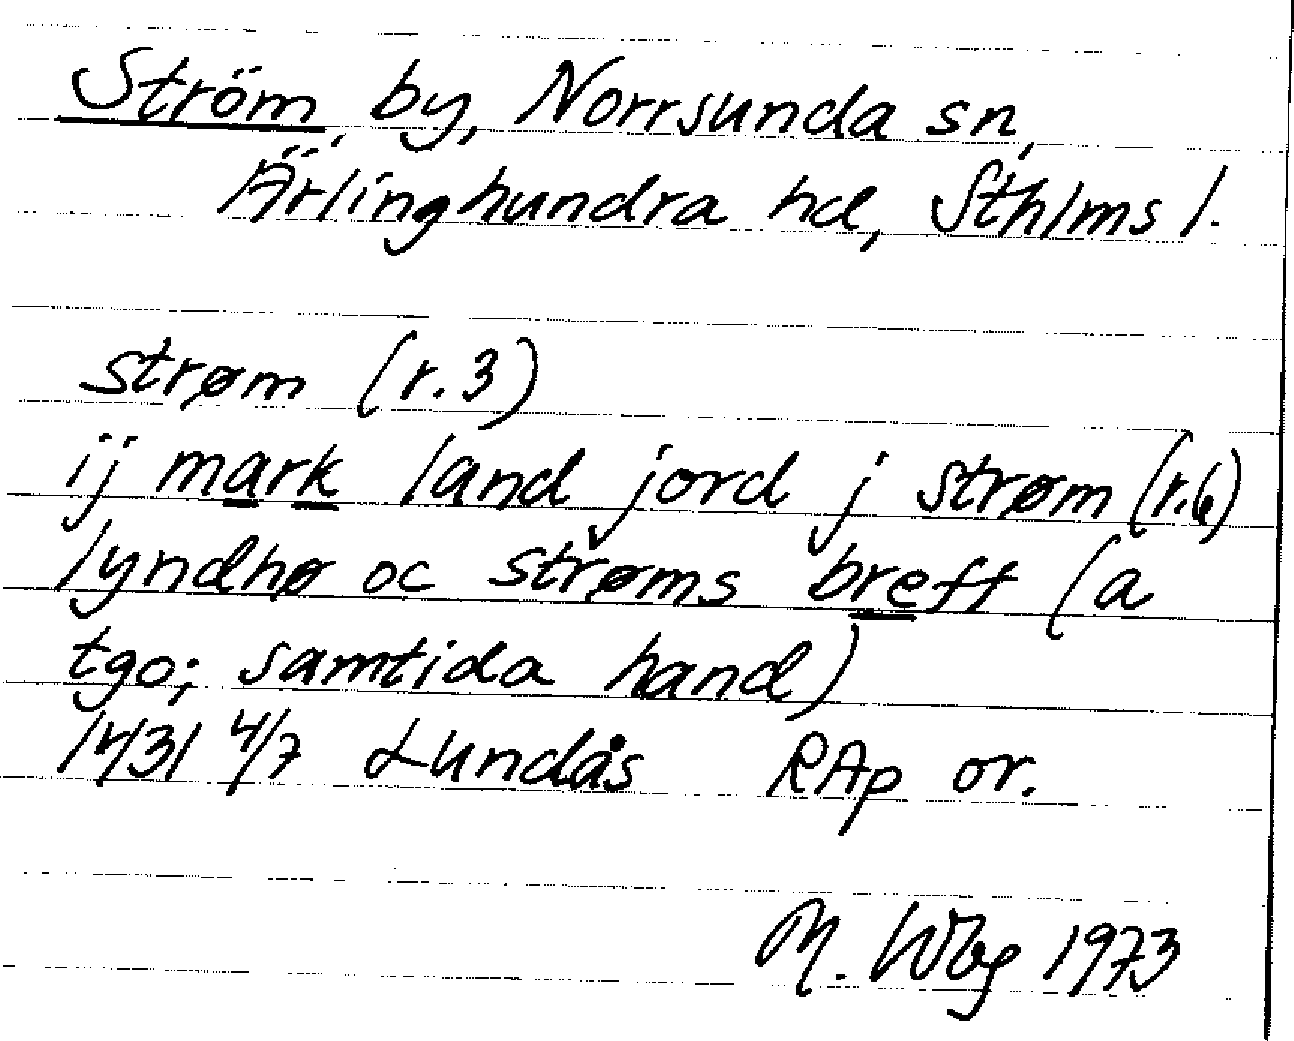 Ström, by, Norrsunda sn,
Ärlinghundra hd, Sthlms l.
strøm (r.3)
ij mark land jord j strøm (r.6)
lyndhø oc strøms breff (a
tgo; samtida hand)
1431 4/7 Lundås RAp or.
M. Wbg 1973